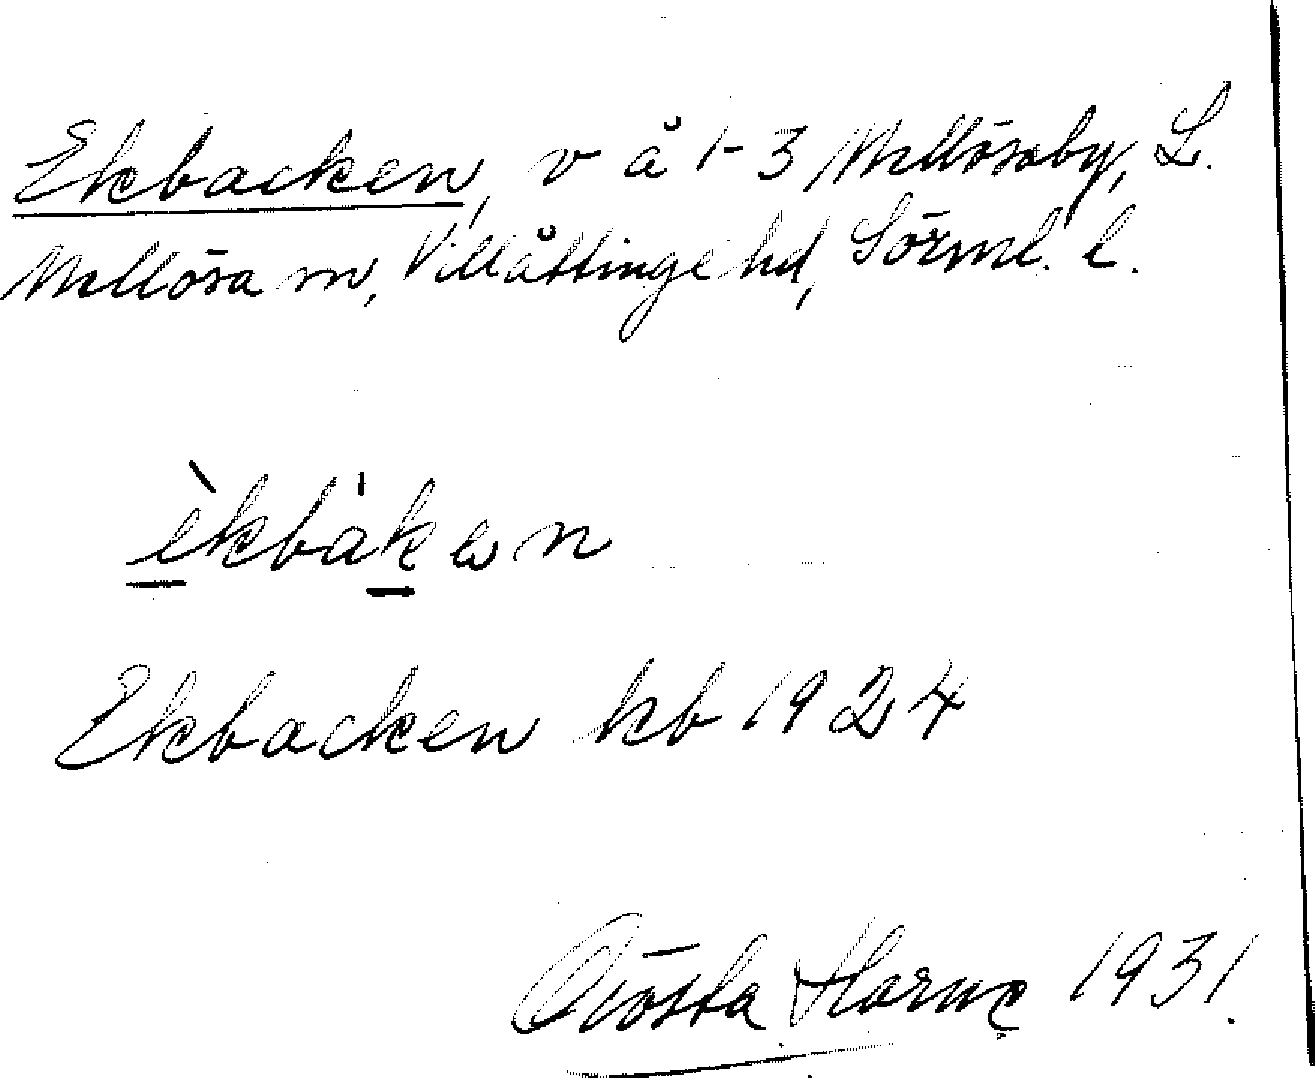 Ekbacken, v å 1-3 Mellösaby, L.
Mellösa sn, Villåttinge hd, Sörml. l.
èkbàkən
Ekbacken kb 1924
Gösta 1931.